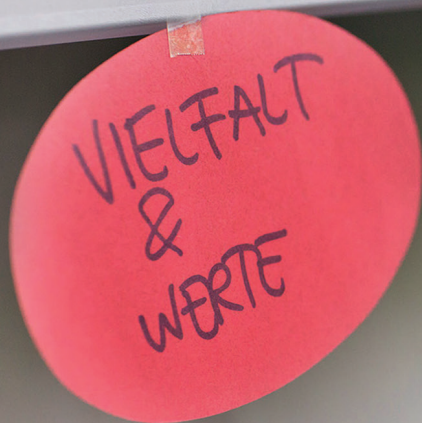 VIELFALT
&
WERTE